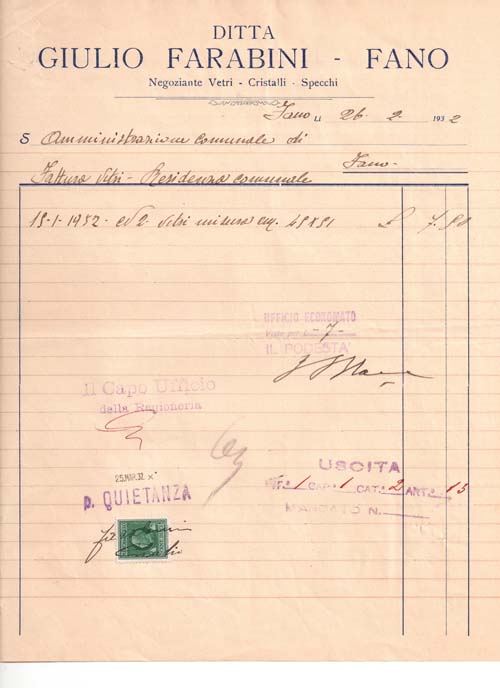 DITTA
GIULIO FARABINI - FANO
Negoziante Vetri - Cristalli - Specchi
Fano Li 26. 2. 1932
S Amministrazione comunale di
Fano.
Fattura Vetri - Residenza comunale
15-1-1932 2 Vetri misura cm. 45x51 £ 7.
UFFICIO ECONOMATO
Visto per L. -7-
IL PODESTA'
Il Capo Ufficio
della Ragioneria
25.MAR.32 X°
p. QUIETANZA
USCITA
TIT.º 1 CAP.º 1 CAT.ª 2 ART.º 15
MANDATO N.